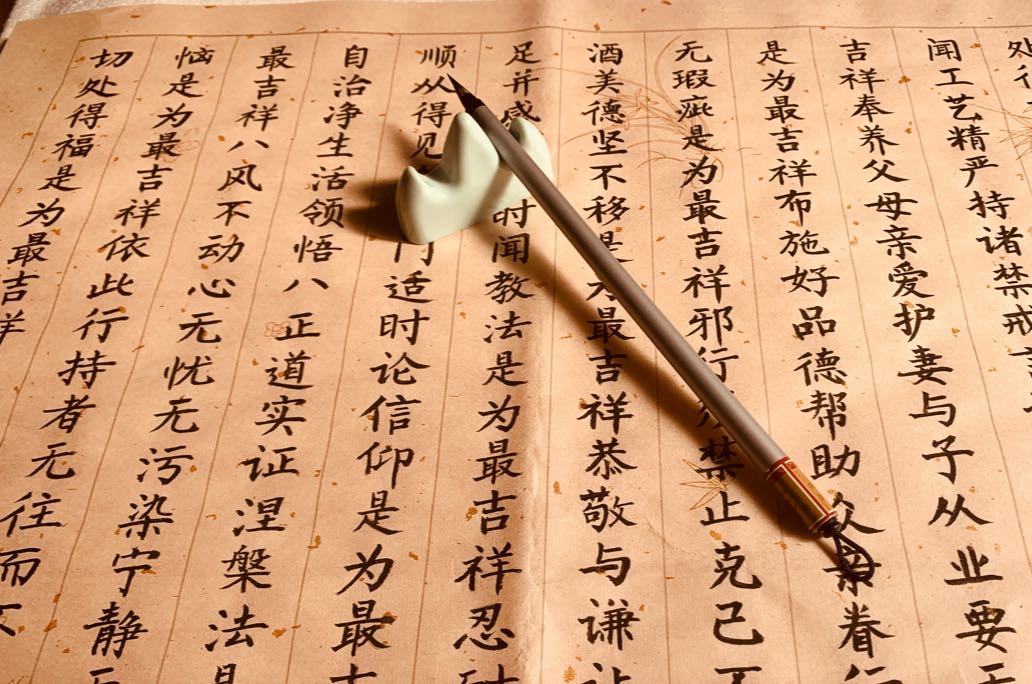 处
闻工艺精严持诸禁戒
吉祥奉养父母亲爱护妻与子从业要无
是为最吉祥布施好品德帮助众亲眷行
无瑕疵是为最吉祥邪行禁止克己不
酒美德坚不移是为最吉祥恭敬与谦让
足并感时闻教法是为最吉祥忍耐
顺从得见门适时论信仰是为最吉
自治净生活领悟八正道实证涅槃法是
最吉祥八风不动心无忧无污染宁静无
恼是为最吉祥依此行持者无往而不
切处得福是为最吉祥